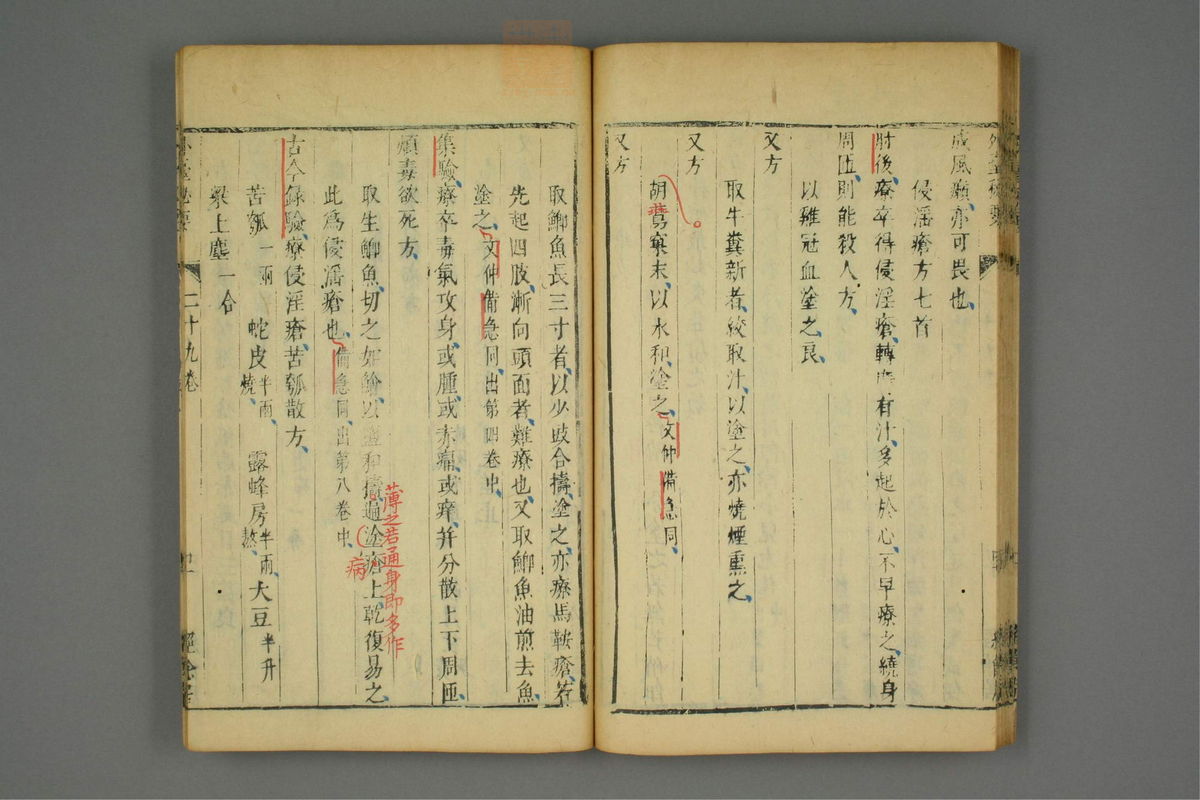 成風癩、亦可畏也、
侵淫瘡方七首
肘後療卒得侵淫瘡、轉有汁、多起於心、不早療之、繞身
周匝、則能殺人方、
以雞冠血塗之良、
又方
取牛糞新者、絞取汁、以塗之、亦燒煙熏之、
又方
胡鷰窠末、以水和塗之、文仲備急同、
又方
取鯽魚長三寸者、以少豉合擣、塗之、亦療馬鞍瘡、若
先起四肢、漸向頭面者、難療也、又取鯽魚油煎去魚、
塗之、文仲備急同、出第四卷中、
集驗、療卒毒氣攻身、或腫或赤痛、或痒、并分散上下周匝、
煩毒欲死方、
取生鯽魚、切之如鱠、以鹽和擣、遍塗瘡上、乾復易之、
薄之若通身即多作
病
此為侵淫瘡也、備急同、出第八卷中、
古今錄驗、療侵淫瘡、苦瓠散方、
苦瓠一兩 蛇皮半兩、燒、 露蜂房半兩、熬、 大豆半升
梁上塵一合
外臺秘要 二十九卷 經餘居